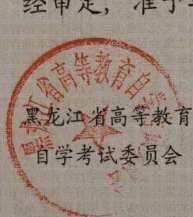 经审定，准予
黑龙江省高等教育自
黑龙江省高等教育
自学考试委员会